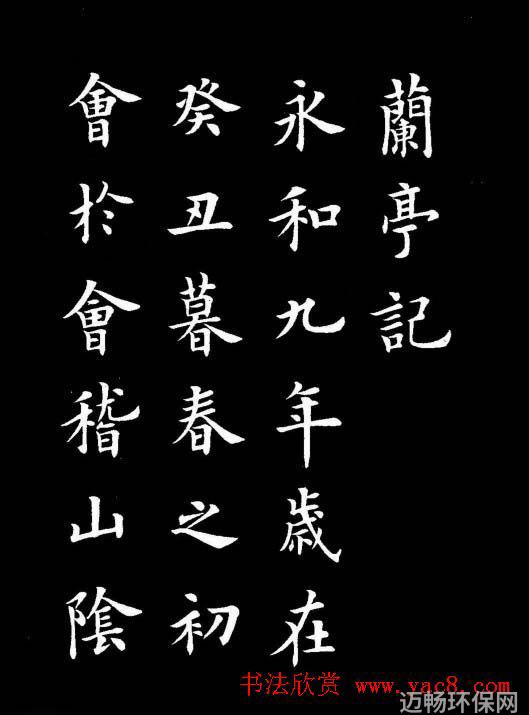 蘭亭記
永和九年歲在
癸丑暮春之初
會於會稽山陰
书法欣赏 www.yac8.com
迈畅环保网